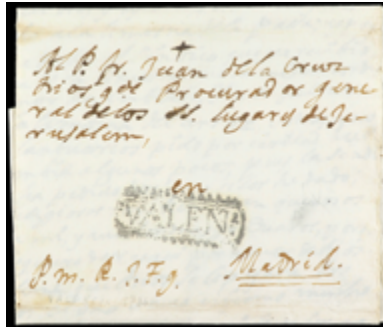 Al P. fr. Juan de la Cruz
Procurador gene
ral de los SS. lugares de Je-
rusalem,
en
VALEN.
P. m. R. J. F. g. Madrid.